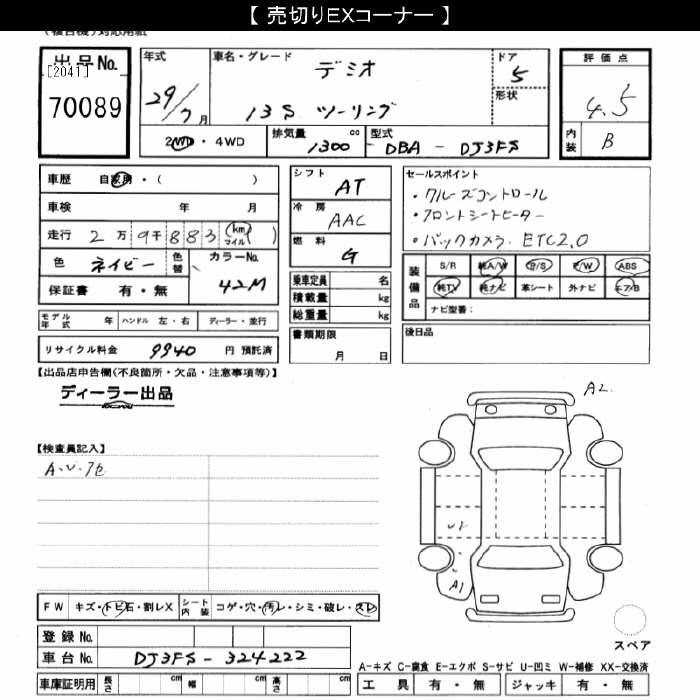 【 売切りEXコーナー 】
出品No.
[2041]
70089
年式
29/7月
車名・グレード
デミオ
13S ツーリング
ドア
5
形状
評価点
4.5
内装 B
2WD・4WD
排気量 1300 cc
型式 DBA - DJ3FS
車歴 自家用・( )
車検 年 月
走行 2万9千883 (km マイル)( )
色 ネイビー 色替 カラーNo. 42M
保証書 有・無
シフト AT
冷房 AAC
燃料 G
乗車定員 名
積載量 kg
総重量 kg
書類期限
月 日
セールスポイント
・クルーズコントロール
・フロントシートヒーター
・バックカメラ ETC2.0
装備品
S/R 純A/W P/S P/W ABS
純TV 純ナビ 革シート 外ナビ エアB
ナビ型番:
後日品
モデル年式 年 ハンドル 左・右 ディーラー・並行
リサイクル料金 9940 円 預託済
【出品店申告欄(不良箇所・欠品・注意事項等)】
ディーラー出品
【検査員記入】
A.U.
A2
U2
A1
FW キズ・トビ石・割レX シート内装 コゲ・穴・汚レ・シミ・破レ・スレ
登録No.
車台No. DJ3FS - 324222
車庫証明用 長さ cm 幅 cm 高さ cm
スペア
A-キズ C-腐食 E-エクボ S-サビ U-凹ミ W-補修 XX-交換済
工具 有・無 ジャッキ 有・無